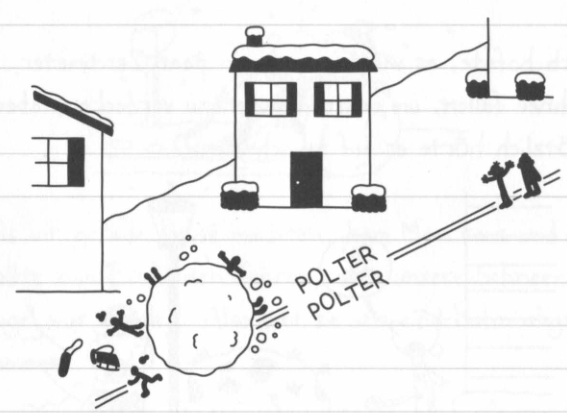 POLTER
POLTER